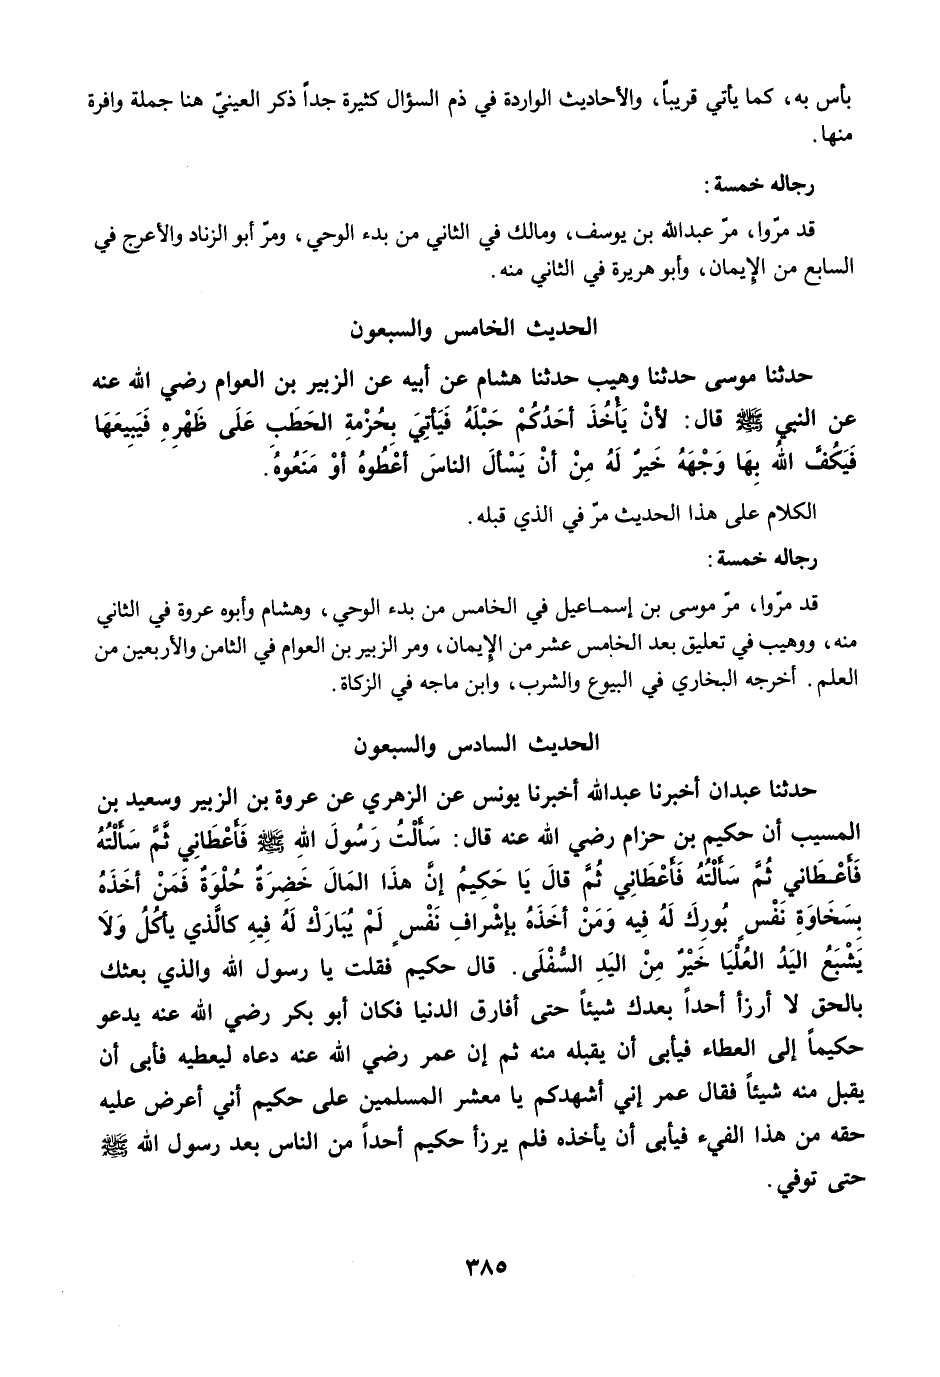 بأس به، كما يأتي قريباً، والأحاديث الواردة في ذم السؤال كثيرة جداً ذكر العينيّ هنا جملة وافرة
منها.
رجاله خمسة:
قد مرّوا، مرّ عبدالله بن يوسف، ومالك في الثاني من بدء الوحي، ومرّ أبو الزناد والأعرج في
السابع من الإيمان، وأبو هريرة في الثاني منه.
الحديث الخامس والسبعون
حدثنا موسى حدثنا وهيب حدثنا هشام عن أبيه عن الزبير بن العوام رضي الله عنه
عن النبي ﷺ قال: لأنْ يَأْخُذَ أحَدُكُمْ حَبْلَهُ فَيَأتِيَ بِحُزْمةِ الحَطَبِ عَلَى ظَهْرِهِ فَيَبِيعَهَا
فَيَكُفَّ اللهُ بِهَا وَجْهَهُ خَيرٌ لَهُ مِنْ أنْ يَسْألَ الناسَ أعْطُوهُ أوْ مَنَعُوهُ.
الكلام على هذا الحديث مرّ في الذي قبله.
رجاله خمسة:
قد مرّوا، مرّ موسى بن إسماعيل في الخامس من بدء الوحي، وهشام وأبوه عروة في الثاني
منه، ووهيب في تعليق بعد الخامس عشر من الإيمان، ومر الزبير بن العوام في الثامن والأربعين من
العلم. أخرجه البخاري في البيوع والشرب، وابن ماجه في الزكاة.
الحديث السادس والسبعون
حدثنا عبدان أخبرنا عبدالله أخبرنا يونس عن الزهري عن عروة بن الزبير وسعيد بن
المسيب أن حكيم بن حزام رضي الله عنه قال: سَألْتُ رَسُولَ اللهِ ﷺ فَأَعْطَانِي ثُمَّ سَأَلْتُهُ
فَأَعْطَاني ثُمَّ سَأَلْتُهُ فَأَعْطَانِي ثُمَّ قالَ يَا حَكِيمُ إنَّ هذَا المَالَ خَضِرَةٌ حُلْوَةٌ فَمَنْ أخَذَهُ
بِسَخَاوَةِ نَفْسٍ بُورِكَ لَهُ فِيه وَمَنْ أخَذَهُ بِإشْرافِ نَفْسٍ لَمْ يُبَارَكْ لَهُ فِيهِ كالَّذي يأكُلُ وَلاَ
يَشْبَعُ اليَدُ العُلْيَا خَيْرٌ مِنْ اليَدِ السُّفْلَى. قال حكيم فقلت يا رسول الله والذي بعثك
بالحق لا أرزأ أحداً بعدك شيئاً حتى أفارق الدنيا فكان أبو بكر رضي الله عنه يدعو
حكيماً إلى العطاء فيأبى أن يقبله منه ثم إن عمر رضي الله عنه دعاه ليعطيه فأبى أن
يقبل منه شيئاً فقال عمر إني أشهدكم يا معشر المسلمين على حكيم أني أعرض عليه
حقه من هذا الفيء فيأبى أن يأخذه فلم يرزأ حكيم أحداً من الناس بعد رسول الله ﷺ
حتى توفي.
٣٨٥